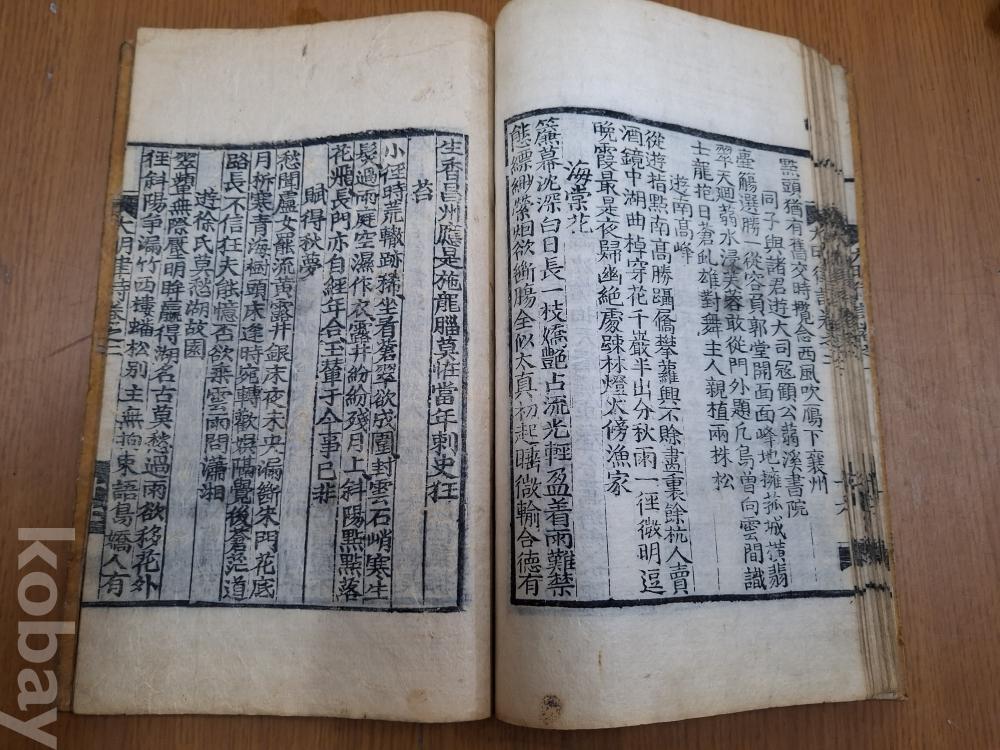 點頭猶有舊交時攬念西風吹鴈下襄州
同子與諸君遊大司寇顧公蒻溪書院
壺觴選勝一從容負郭堂開面面峰地擁菰城橫翡
翠天廻蒻水浸芙蓉敢從門外題凡鳥曽向雲間識
士龍抱日蒼虬雄對舞主人親植兩株松
遊南高峰
從遊指點南高勝躡屩攀蘿興不賖畫裏餘杭人賣
酒鏡中湖曲棹穿花千巖半出分秋雨一徑微明逗
晚霞最是夜歸幽絶處踈林燈火傍漁家
海棠花
簾幕沈深白日長一枝嬌艶占流光輕盈着雨難禁
態縹緲縈烟欲斷腸全似太真初起睡微輸合德有
生香昌州應是施龍腦莫怪當年刺史狂
苔
小徑時荒轍跡稀坐看蒼翠欲成圍封雲石峭寒生
髮過雨庭空濕作衣露井紛紛殘月上斜陽點點落
花飛長門亦自經年合玉輦于今事已非
賦得秋夢
愁聞盧女罷流黃露井銀床夜未央漏斷朱門花底
月柝寒青海樹頭床逢時宛轉歡娯隔覺後蒼茫道
路長不信狂夫能憶否欲乘雲雨問瀟湘
遊徐氏莫愁湖故園
翠蘋無際壓明眸贏得湖名古莫愁過雨欲移花外
徃斜陽爭漏竹西樓蟠松别主無拘束語鳥嬌人有
大明律詩卷之二